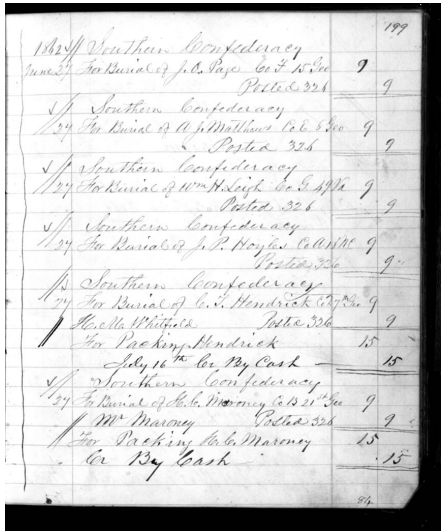 199
1862 Southern Confederacy
June 27 For Burial of J. O. Page Co F 15 Geo 9
Posted 326 9
Southern Confederacy
27 For Burial of A J Matthews Co E 8 Geo 9
Posted 326 9
Southern Confederacy
27 For Burial of Wm H. Leigh Co G 49 Va 9
Posted 326 9
Southern Confederacy
27 For Burial of J. P. Hoyles Co A NC 9
Posted 326 9
Southern Confederacy
27 For Burial of C. T. Hendrick Co 7th Geo 9
H. M. Whitfield Posted 326 9
For Packing Hendrick 15
July 16th Cr By Cash 15
Southern Confederacy
27 For Burial of H. C. Maroney Co B 21st Geo 9
Mr Maroney Posted 326 9
For Packing H. C. Maroney 15
Cr By Cash 15
84